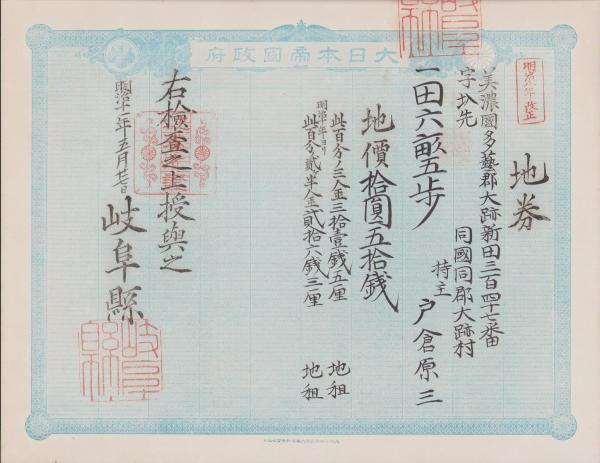 大日本帝國政府
明治九年改正
地券
美濃國多藝郡大跡新田三百四十七番
字圦先
同國同郡大跡村
持主 戸倉原三
一田六畝五歩
地價拾圓五拾銭
此百分ノ三金三拾壹銭五厘 地租
明治十年ヨリ
此百分ノ貳半金貳拾六銭三厘 地租
右検査之上授與之
明治十一年五月廿一日
岐阜縣